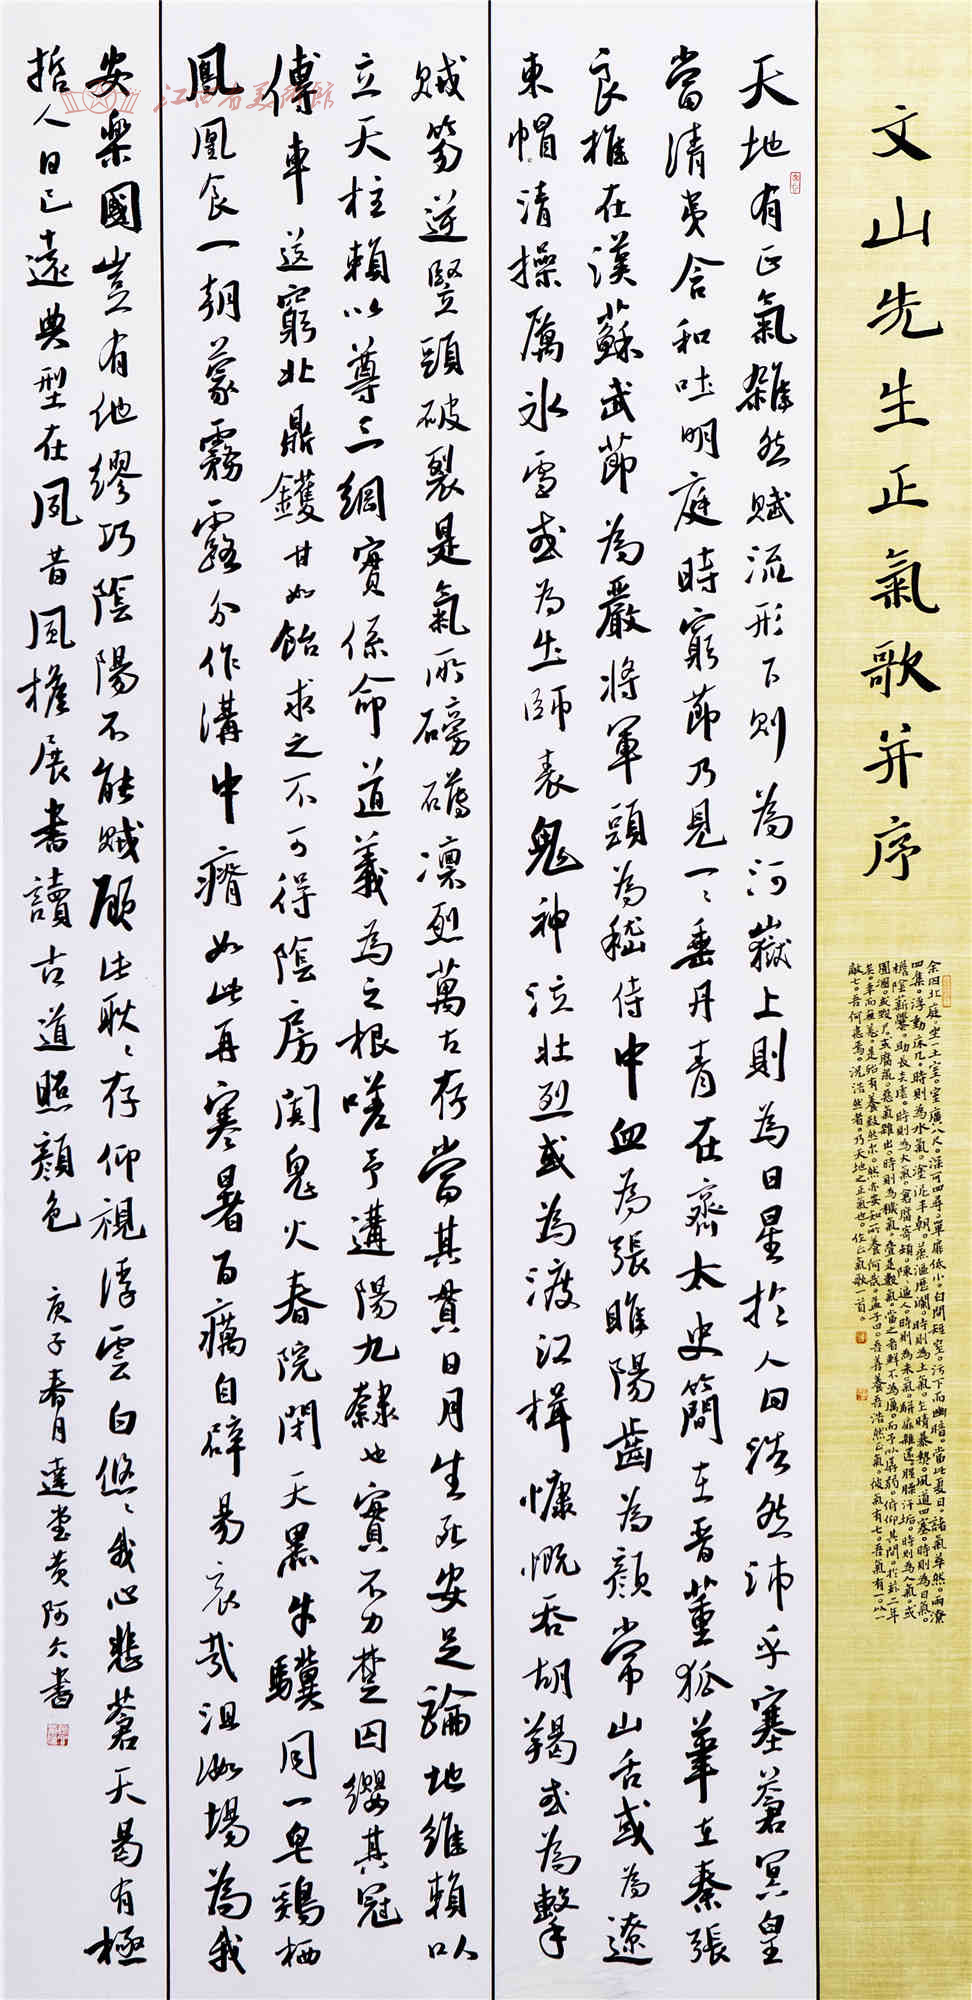 文山先生正氣歌并序
余囚北庭。坐一土室。室廣八尺。深可四尋。單扉低小。白間短窄。污下而幽暗。當此夏日。諸氣萃然。雨潦
四集。浮動床几。時則為水氣。塗泥半朝。蒸漚歷瀾。時則為土氣。乍晴暴熱。風道四塞。時則為日氣。
檐陰薪爨。助長炎虐。時則為火氣。倉腐寄頓。陳陳逼人。時則為米氣。駢肩雜遝。腥臊汗垢。時則為人氣。或
圊溷。或毀尸。或腐鼠。惡氣雜出。時則為穢氣。疊是數氣。當之者鮮不為厲。而予以孱弱。俯仰其間。於茲二年
矣。幸而無恙。是殆有養致然尔。然亦安知所養何哉。孟子曰。吾善養吾浩然之氣。彼氣有七。吾氣有一。以一
敵七。吾何患焉。況浩然者。乃天地之正氣也。作正氣歌一首。
天地有正氣雜然賦流形下則為河嶽上則為日星於人曰浩然沛乎塞蒼冥皇
當清夷含和吐明庭時窮節乃見一〻垂丹青在齊太史簡在晉董狐筆在秦張
良椎在漢蘇武節為嚴將軍頭為嵇侍中血為張睢陽齒為顏常山舌或為遼
東帽清操厲冰雪或為出師表鬼神泣壯烈或為渡江楫慷慨吞胡羯或為擊
賊笏逆豎頭破裂是氣所磅礡凜烈萬古存當其貫日月生死安足論地維賴以
立天柱賴以尊三綱實係命道義為之根嗟予遘陽九隸也實不力楚囚纓其冠
傳車送窮北鼎鑊甘如飴求之不可得陰房闃鬼火春院閉天黑牛驥同一皂雞栖
鳳凰食一朝蒙霧露分作溝中瘠如此再寒暑百癘自辟易哀哉沮洳場為我
安樂國豈有他繆巧陰陽不能賊顧此耿〻存仰視浮雲白悠〻我心悲蒼天曷有極
哲人日已遠典型在夙昔風檐展書讀古道照顏色 庚子春月達堂黃阿六書
江西省美術館